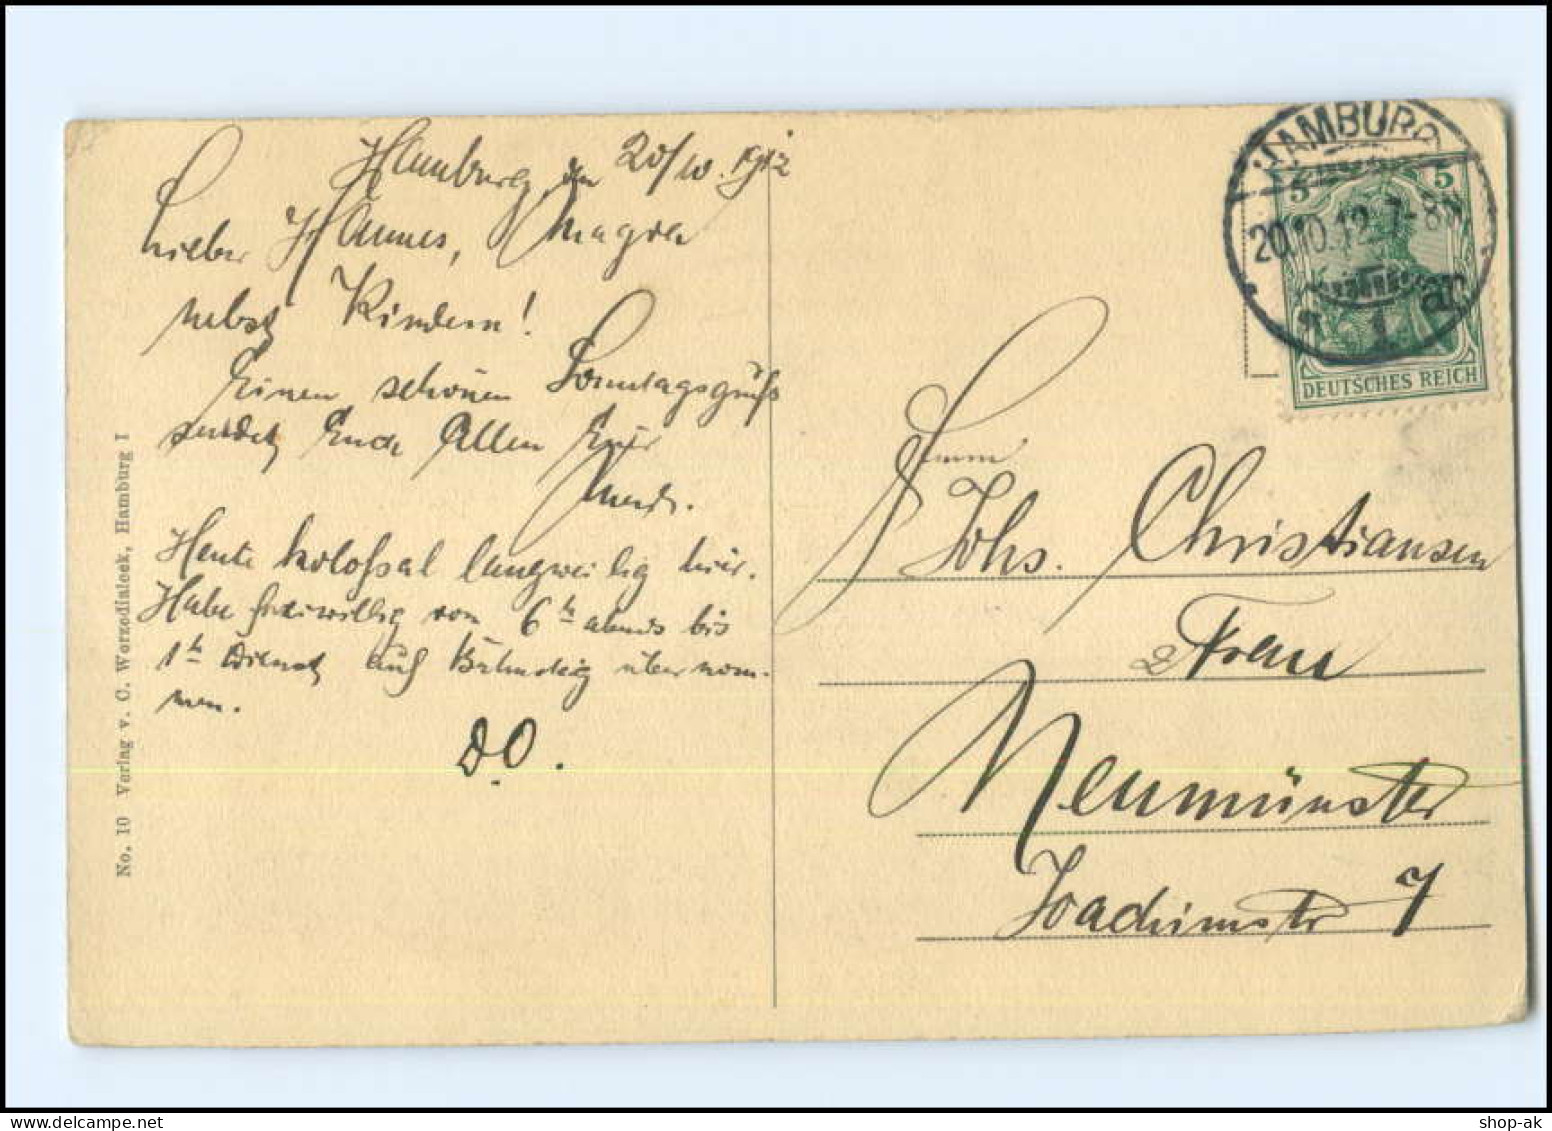 Hamburg, den 20/10. 1912
Lieber Hannes, Magda
nebst Kindern!
Einen schönen Sonntagsgruß
sendet Euch Allen Euer
Heute kolossal langweilig hier.
Habe freiwillig von 6 h abends bis
1 h Dienst auf Bahnsteig übernom-
men.
D.O.
No. 10 Verlag v. C. Worzedialeck, Hamburg I
HAMBURG
20.10.12.7-8N
* 1 ar
5 5
DEUTSCHES REICH
Herrn
Johs. Christiansen
& Frau
Neumünster
Joachimstr 7
shop-ak